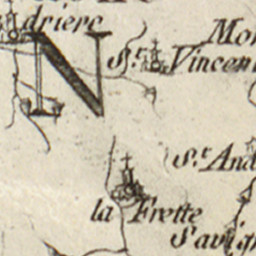 drierc
Mon
N
S.t Vincent
S.t And
la Frette
Savign